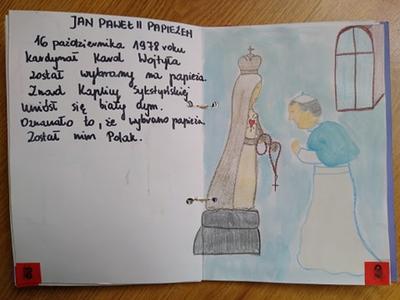 JAN PAWEŁ II PAPIEŻEM
16 października 1978 roku
Kardynał Karol Wojtyła
został wybrany na papieża.
Znad Kaplicy Sykstyńskiej
uniósł się biały dym.
Oznaczało to, że wybrano papieża.
Został nim Polak.